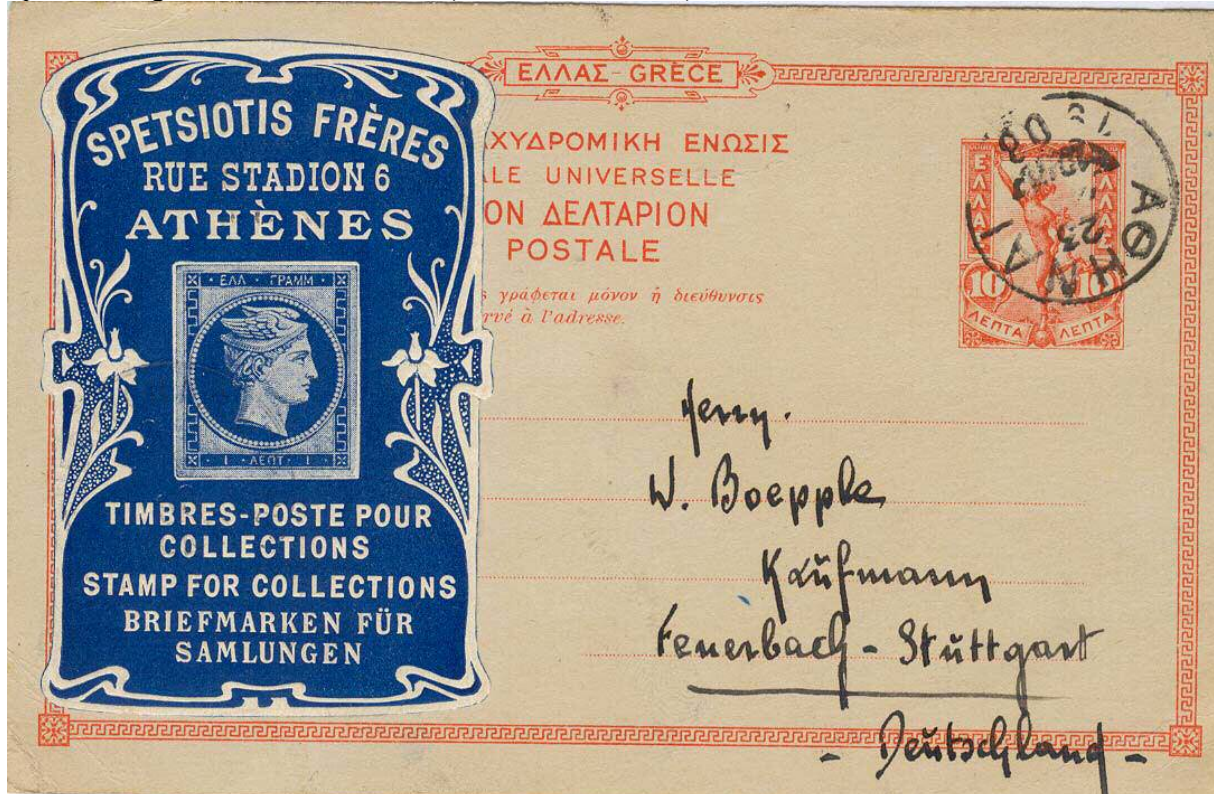 ΕΛΛΑΣ-GRÈCE
SPETSIOTIS FRÈRES
RUE STADION 6
ATHÈNES
ΕΛΛ · ΓΡΑΜΜ
1 · ΛΕΠΤ · 1
TIMBRES-POSTE POUR
COLLECTIONS
STAMP FOR COLLECTIONS
BRIEFMARKEN FÜR
SAMLUNGEN
ΑΧΥΔΡΟΜΙΚΗ ΕΝΩΣΙΣ
ALE UNIVERSELLE
ΟΝ ΔΕΛΤΑΡΙΟΝ
POSTALE
ς γράφεται μόνον ἡ διεύθυνσις
rvé à l'adresse.
ΕΛΛΑΣ ΕΛΛΑΣ
10 10
ΛΕΠΤΑ ΛΕΠΤΑ
ΑΘΗΝΑΙ
23
08
Herrn.
W. Boepple
Kaufmann
Feuerbach - Stuttgart
- Deutschland -